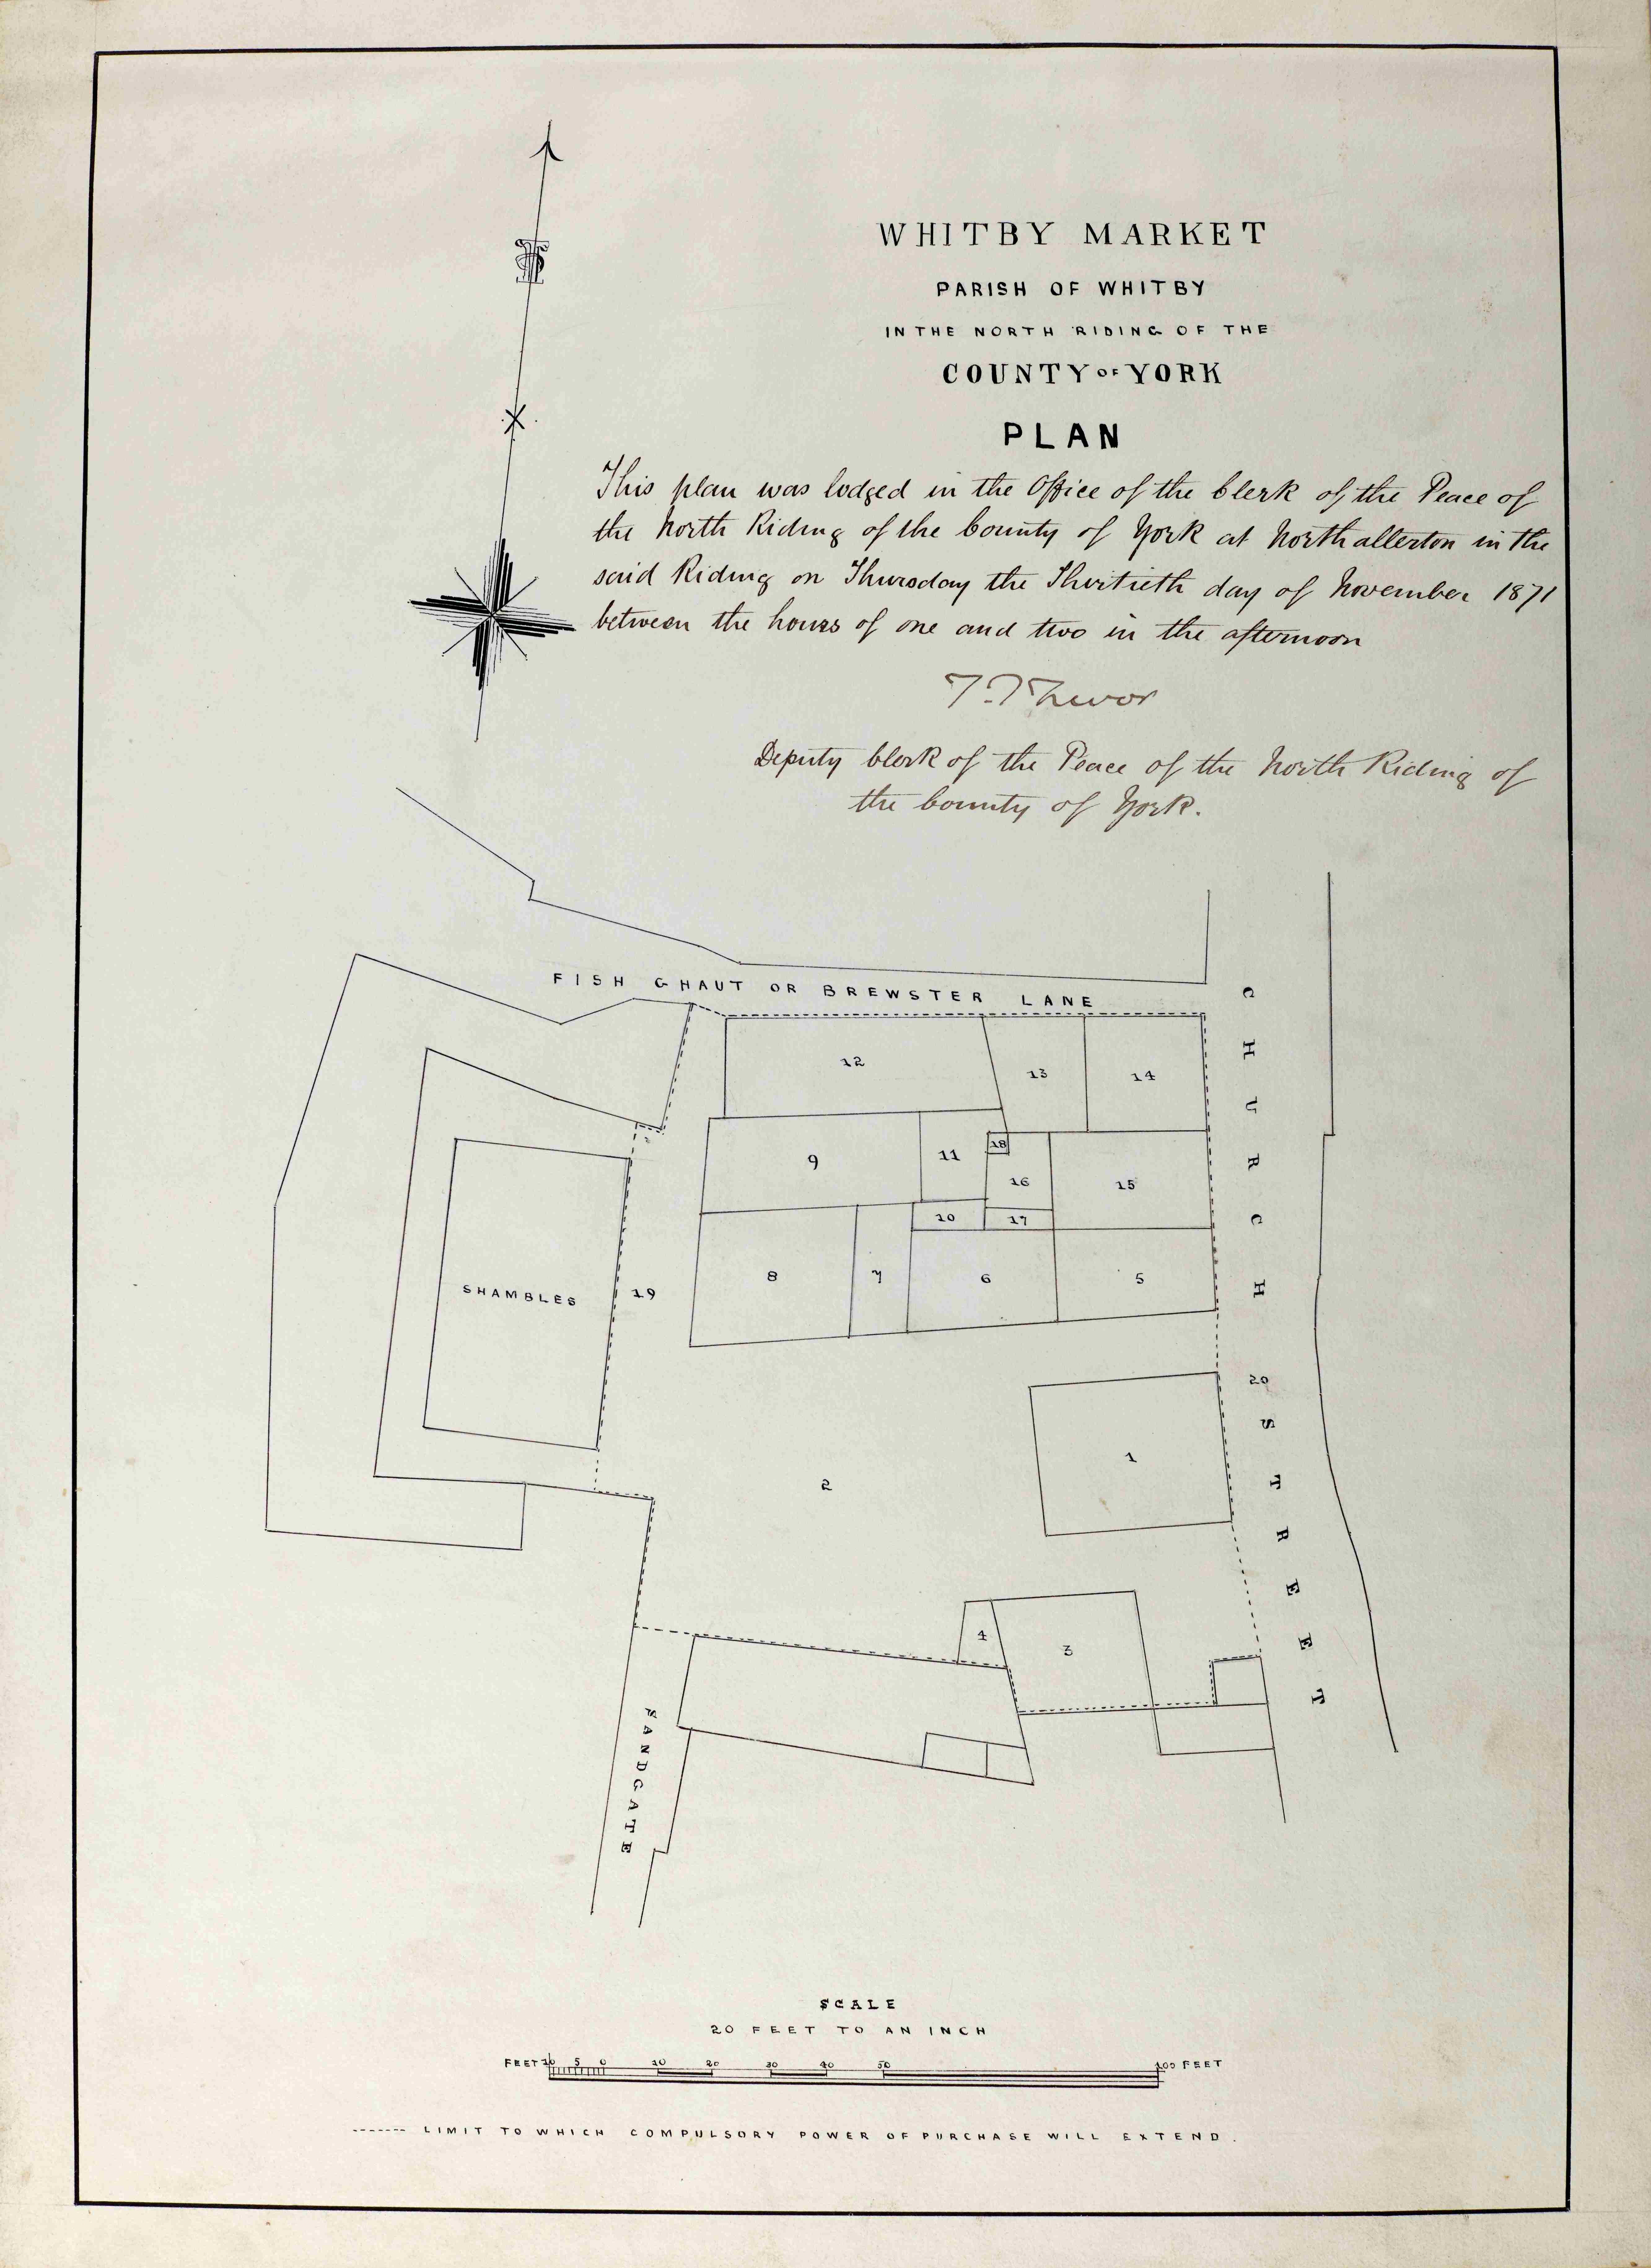 WHITBY MARKET
PARISH OF WHITBY
IN THE NORTH RIDING OF THE
COUNTY OF YORK
PLAN
This plan was lodged in the Office of the Clerk of the Peace of
the North Riding of the County of York at Northallerton in the
said Riding on Thursday the Thirtieth day of November 1871
between the hours of one and two in the afternoon
Deputy Clerk of the Peace of the North Riding of
the County of York.
FISH GHAUT OR BREWSTER LANE
CHURCH STREET
12
13
14
9
11
18
16
15
10
17
8
7
6
5
SHAMBLES
19
20
1
2
4
3
SANDGATE
SCALE
20 FEET TO AN INCH
FEET 10 5 0 10 20 30 40 50 100 FEET
LIMIT TO WHICH COMPULSORY POWER OF PURCHASE WILL EXTEND.